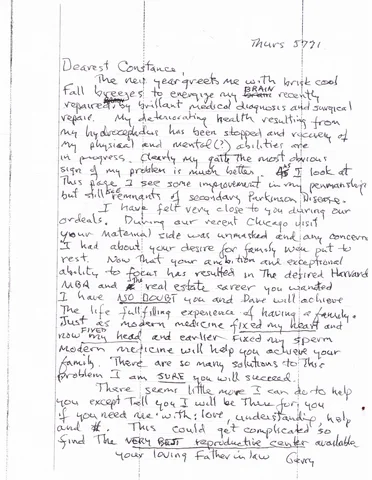 Thurs 5771
Dearest Constance,
The new year greets me with brisk cool
Fall breezes to energize my BRAIN recently
repaired by brillant medical diagnosis and surgical
repair. My deteriorating health resulting from
my hydrocephus has been stopped and recovery of
my physical and mental(?) abilities are
in progress. Clearly my gait the most obvious
sign of my problem is much better. As I look at
this page I see some improvement in my penmanship
but still see remnants of secondary Parkinson Disease.
I have felt very close to you during our
ordeals. During our recent Chicago visit
your maternal side was unmasked and any concern
I had about your desire for family was put to
rest. Now that your ambition and exceptional
ability to focus has resulted in the desired Harvard
MBA and the real estate career you wanted
I have NO DOUBT you and Dave will achieve
The life fullfilling experience of having a family.
Just as modern medicine fixed my heart and
now FIXED my head and earlier fixed my sperm
modern medicine will help you achieve your
family. There are so many solutions to this
problem I am SURE you will succeed.
There seems little more I can do to help
you except tell you I will be There for you
if you need me with; love, understanding, help
and $. This could get complicated so
find The VERY BEST reproductive center available
your loving Father in law Gerry